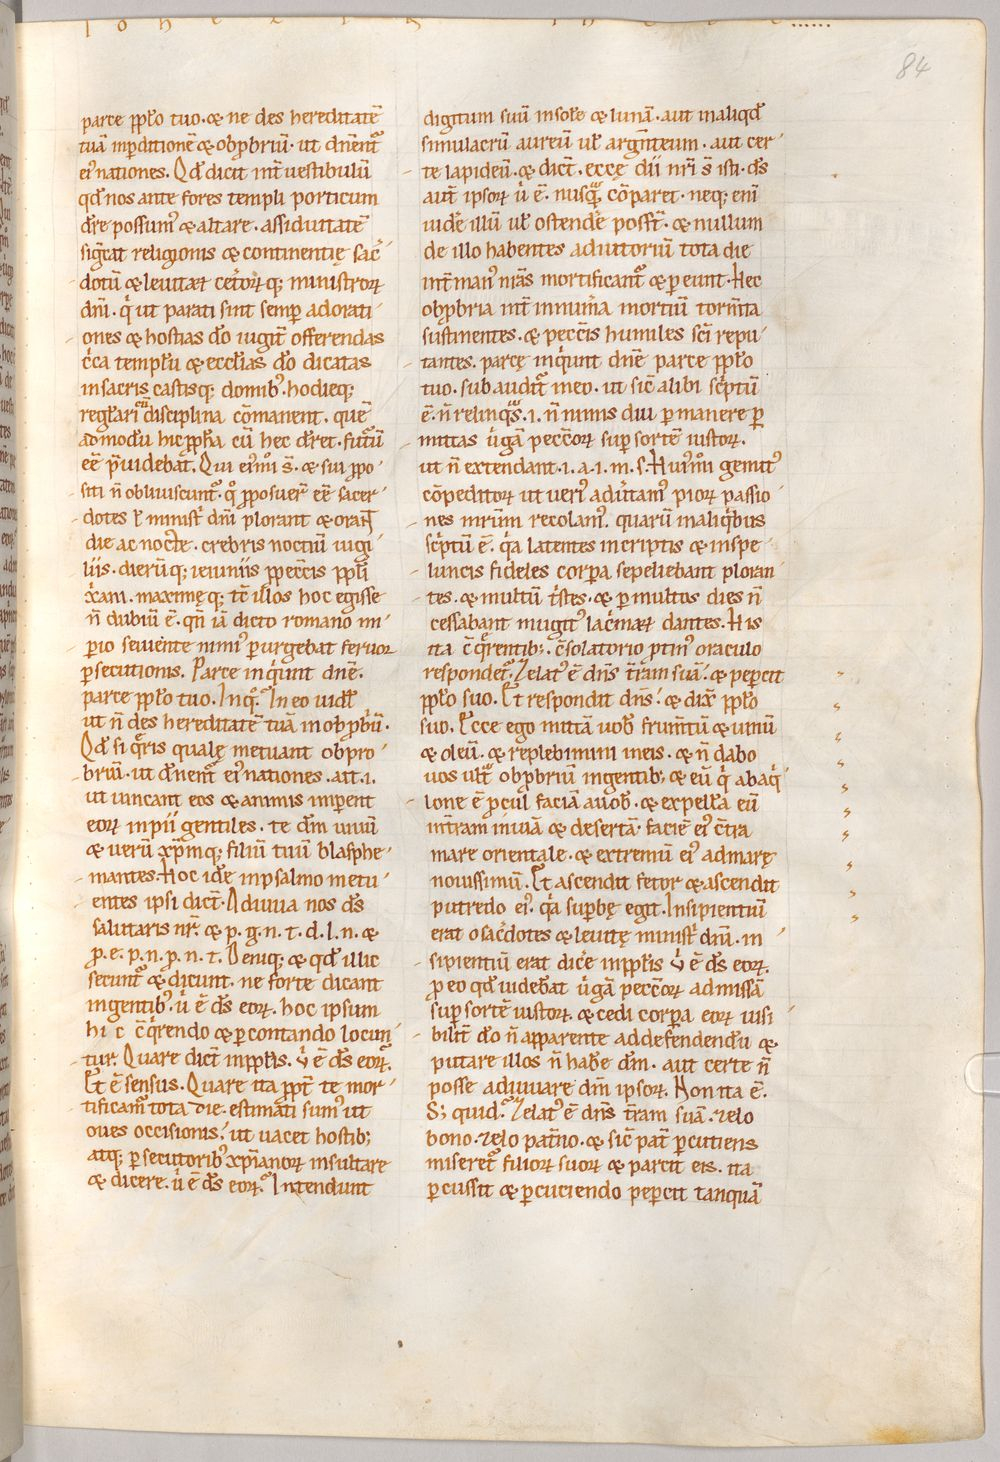 84
parce pp̄lo tuo. & ne des hereditatē
tuā inp̄ditionē & obp̄briū. ut dn̄ent᷑
ei᷒ nationes. Qđ dicit int̄ uestibulū
qđ nos ante fores templi porticum
dr̄e possum᷒ & altare. assiduitatē
sig̅cat religionis & continentię sac̄
dotū & leuitaꝝ cet̄oꝝq; ministroꝝ
dn̄i. q̇ ut parati sint semp̱ adorati
ones & hostias dō iugit̄ offerendas
c̄ca templū & eccl̄ias dō dicatas
in sacris castisq; domib᷒. hodieq;
regłari disciplina cōmanent. quē
admodū hic ꝓph̄a cū hec dr̄et. futū
eē p̄uidebat. Qui ei᷒mōi s̄. & sui ꝓpo
siti n̄ obliuiscunt᷑. qō ꝓposuer̄ eē sacer
dotes ł ministr̄ dn̄i plorant & orant
die ac nocte. crebris noctiū uigi
liis. dierūq; ieiuniis ꝓ pecc̄is pp̄li
xp̄iani. maximęq; tc̄ illos hoc egisse
n̄ dubiū ē. qn̄ iā dicto romano im
perio seuiente nimi᷒ ꝑurgebat feruor
ꝑsecutionis. Parce inq̇unt dn̄e.
parce pp̄lo tuo. Inq᷑. In eo uidl̄
ut n̄ des hereditatē tuā in obp̄briū.
Qđ si q̄ris qualę metuant obpro
briū. ut dn̄ent᷑ ei᷒ nationes. ait. i.
ut uincant eos & animis imperent
eoꝝ inpii gentiles. te dm̄ uiuū
& uerū xp̄mq; filiū tuū blasphe
mantes. Hoc idē in psalmo metu
entes ipsi dict̄. Adiuua nos ds̄
salutaris nr̄. & p. g. n. t. d. l. n. &
p. e. p. n. p. n. t. Deniq; & qđ illic
secunt᷑ & dicunt. ne forte dicant
in gentib᷒. u̇ ē ds̄ eoꝝ. hoc ipsum
hi c c̄q̇rendo & ꝑcontando locun
tur. Quare dict̄ in pp̄lis. u̇ ē ds̄ eoꝝ.
Et ē sensus. Quare ita ꝓpt̄ te mor
tificam᷑ tota die. estimati sum᷒ ut
oues occisionis. ut uacet hostib;
atq; ꝑsecutorib᷒ xp̄ianoꝝ insultare
& dicere. u̇ ē ds̄ eoꝝ. Intendunt
digitum suū in sole & lunā. aut in aliqđ
simulacrū aureū ul̄ argn̄teum. aut cer
te lapideū. & dict̄. eccę dii nr̄i s̄ isti. ds̄
aut̄ ipsoꝝ u̇ ē. nusq̄ cōparet. neq; eni
uidē illū ul̄ ostendē posst̄. & nullum
de illo habentes adiutoriū tota die
int̄ man᷒ nr̄as mortificant᷑ & pereunt. Hec
obp̄bria int̄ innum̄a mortiū torm̄ta
sustinentes. & pecc̄is humiles sc̄i repu
tantes. parcę inq̇unt dn̄e parce pp̄lo
tuo. subaudit᷑ meo. ut sic̄ alibi sc̄ptū
ē. n̄ relinq̄s. i. n̄ nimis diu permanere per
mittas u̇gā pecc̄oꝝ sup̱ sortē iustoꝝ.
ut n̄ extendant. i. a. i. m. s. Hui᷒mōi gemit᷒
cōpeditoꝝ ut ueri᷒ aduertam᷒ pioꝝ passio
nes mr̄um recolam᷒. quarū in aliq̇bus
sc̄ptū ē. q̇a latentes in criptis & in spe
luncis fideles corp̱a sepeliebant ploran
tes. & multū tr̄stes. & per multos dies n̄
cessabant mugit᷒ lac̄maꝝ dantes. His
ita c̄q̄rentib;. c̄solatorio ꝓtin᷒ oraculo
respondet᷑. Zelat᷒ ē dn̄s tr̄am suā. & peꝑcit
pp̄lo suo. Et respondit dn̄s. & dix̄ pp̄lo
suo. Ecce ego mittā uob̄ frum̄tū & uinū
& oleū. & replebimini in eis. & n̄ dabo
uos ult᷑ obp̄briū in gentib; & eū q̇ ab aq̇
lone ē ꝓcul faciā a uob̄. & expellā eū
in tr̄am inuiā & desertā. faciē ei᷒ c̄tra
mare orientale. & extremū ei᷒ ad marę
nouissimū. Et ascendit fetor & ascendit
putredo ei᷒. q̇a sup̱bę egit. Insipientiū
erat o sac̄dotes & leuitę ministr̄ dn̄i. in
sipientiū erat dicē in pp̄lis u̇ ē ds̄ eoꝝ.
ꝓ eo qđ uidebat u̇gā pecc̄oꝝ admissā
sup̱ sortē iustoꝝ. & cedi corp̱a eoꝝ uisi
bilit̄ dō n̄ apparente ad defendendū &
putare illos n̄ habē dm̄. aut certe n̄
posse adiuuare dm̄ ipsoꝝ. Non ita ē.
S; quid. Zelat᷒ ē dn̄s tr̄am suā. zelo
bono. zelo pat̄no. & sic̄ pat̄ ꝑcutiens
miseret᷑ filioꝝ suoꝝ & parcit eis. ita
ꝑcussit & ꝑcutiendo peꝑcit tanquā